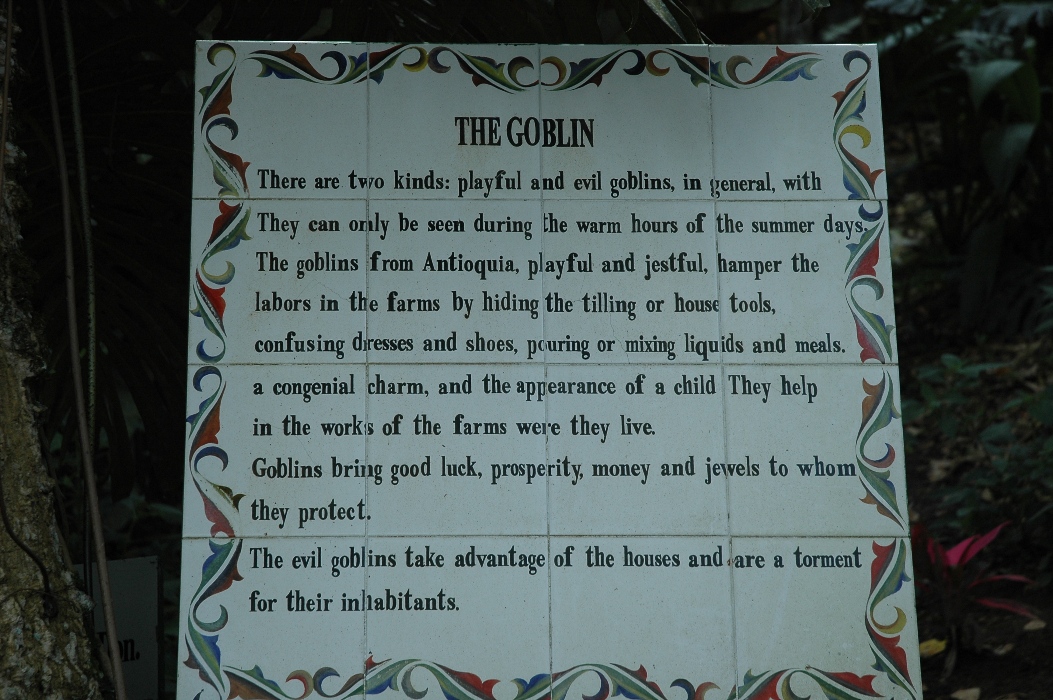 THE GOBLIN
There are two kinds: playful and evil goblins, in general, with
They can only be seen during the warm hours of the summer days.
The goblins from Antioquia, playful and jestful, hamper the
labors in the farms by hiding the tilling or house tools,
confusing dresses and shoes, pouring or mixing liquids and meals.
a congenial charm, and the appearance of a child They help
in the works of the farms were they live.
Goblins bring good luck, prosperity, money and jewels to whom
they protect.
The evil goblins take advantage of the houses and are a torment
for their inhabitants.